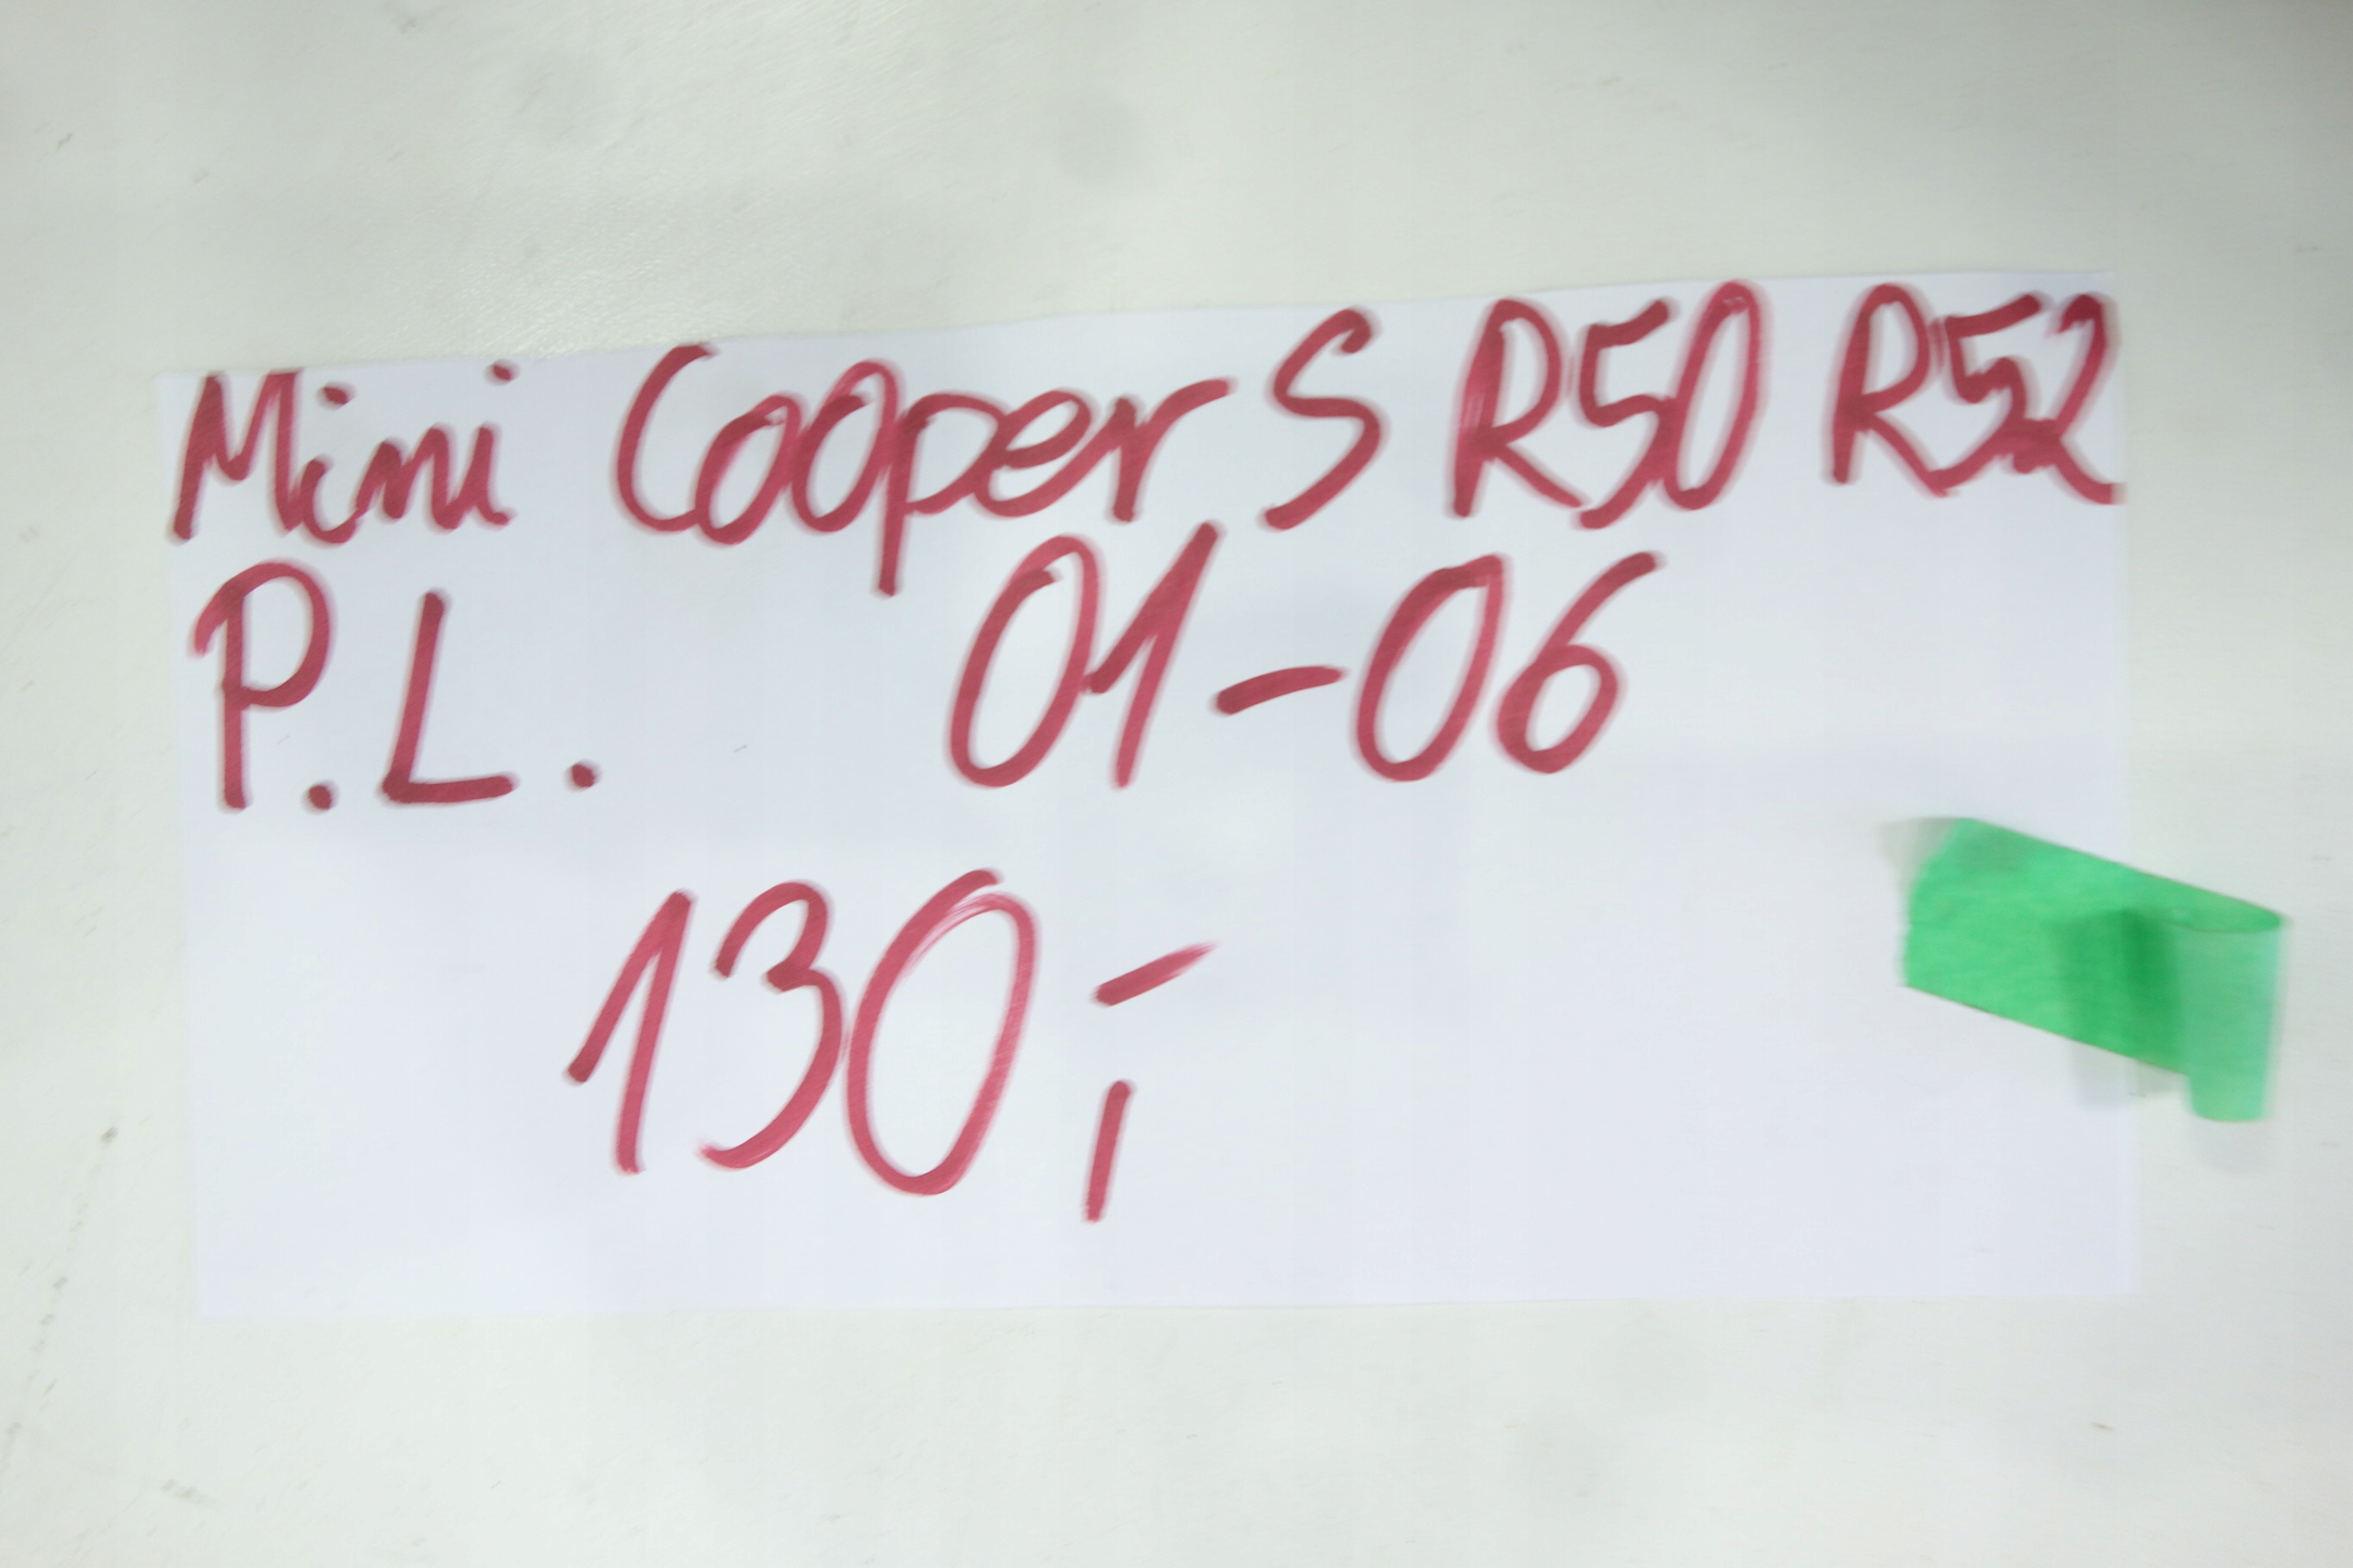 Mini Cooper S R50 R52
P.L. 01-06
130,-